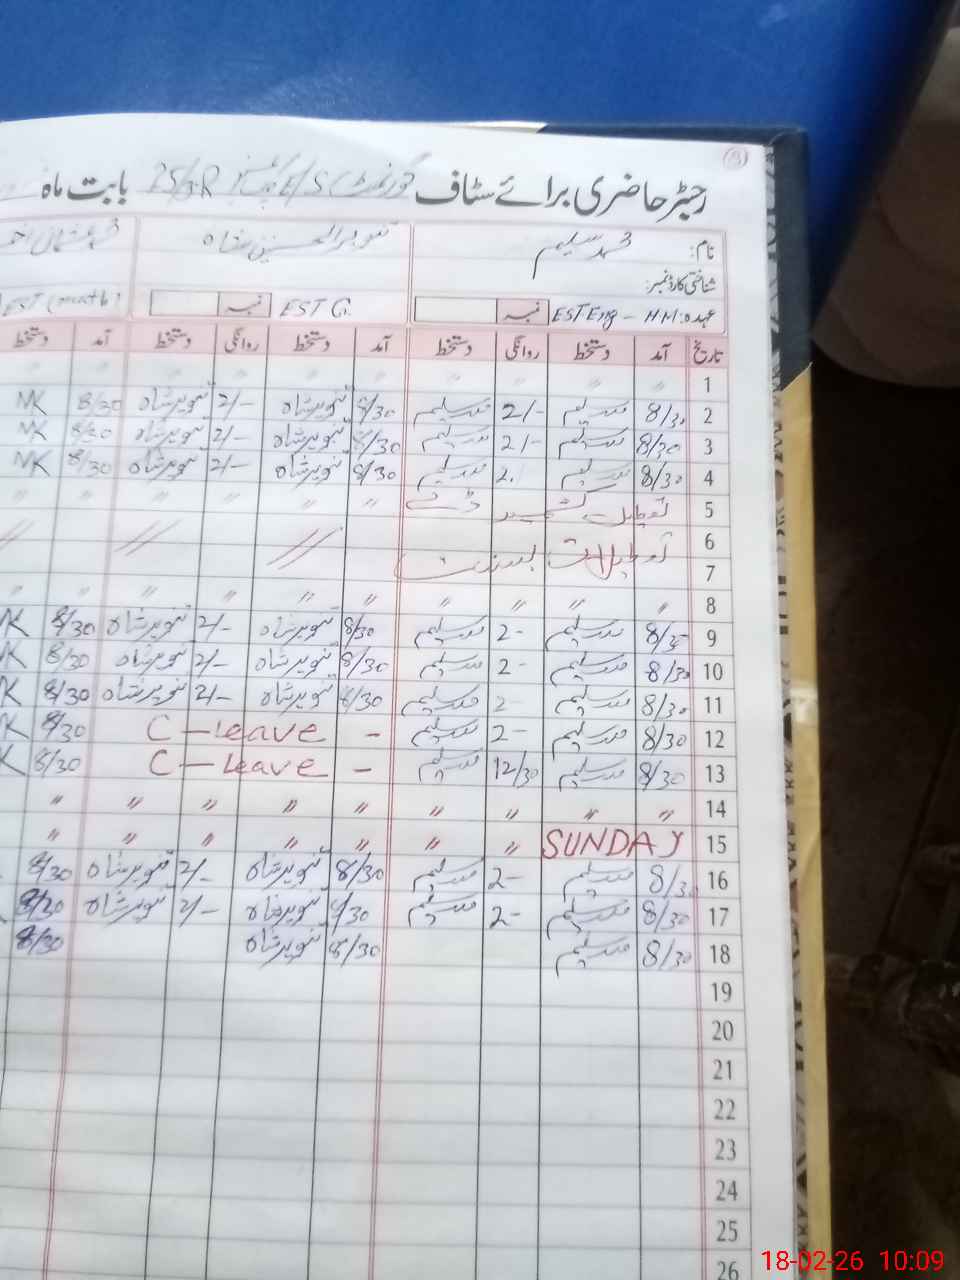 رجسٹر حاضری برائے سٹاف گورنمنٹ E/S 25/3R بابت ماہ
نام: محمد سلیم تنویر الحسنین شاہ محمد عثمان
شناختی کارڈ نمبر:
عہدہ: EST Eng - HM نمبر EST G. نمبر EST (math)
تاریخ آمد دستخط روانگی دستخط آمد دستخط روانگی دستخط آمد دستخط
1 " " " " " " " "
2 8/30 محمد سلیم 2/- محمد سلیم 8/30 تنویر شاہ 2/- تنویر شاہ 8/30 MK
3 8/30 محمد سلیم 2/- محمد سلیم 8/30 تنویر شاہ 2/- تنویر شاہ 8/30 MK
4 8/30 محمد سلیم 2. محمد سلیم 8/30 تنویر شاہ 2/- تنویر شاہ 8/30 MK
5 تعطیل کشمیر ڈے " " " " " "
6
7 تعطیلات بسنت // // //
8 " " " " " " " " "
9 8/30 محمد سلیم 2- محمد سلیم 8/30 تنویر شاہ 2/- تنویر شاہ 8/30 K
10 8/30 محمد سلیم 2- محمد سلیم 8/30 تنویر شاہ 2/- تنویر شاہ 8/30 K
11 8/30 محمد سلیم 2- محمد سلیم 8/30 تنویر شاہ 2/- تنویر شاہ 8/30 K
12 8/30 محمد سلیم 2- محمد سلیم - C-Leave 8/30 K
13 8/30 محمد سلیم 12/30 محمد سلیم - C-Leave 8/30 K
14 " " " " " " " " "
15 SUNDAY " " " " " " "
16 8/30 محمد سلیم 2- محمد سلیم 8/30 تنویر شاہ 2/- تنویر شاہ 8/30
17 8/30 محمد سلیم 2- محمد سلیم 8/30 تنویر شاہ 2/- تنویر شاہ 8/30
18 8/30 محمد سلیم 8/30 تنویر شاہ 8/30
19
20
21
22
23
24
25
26
18-02-26 10:09